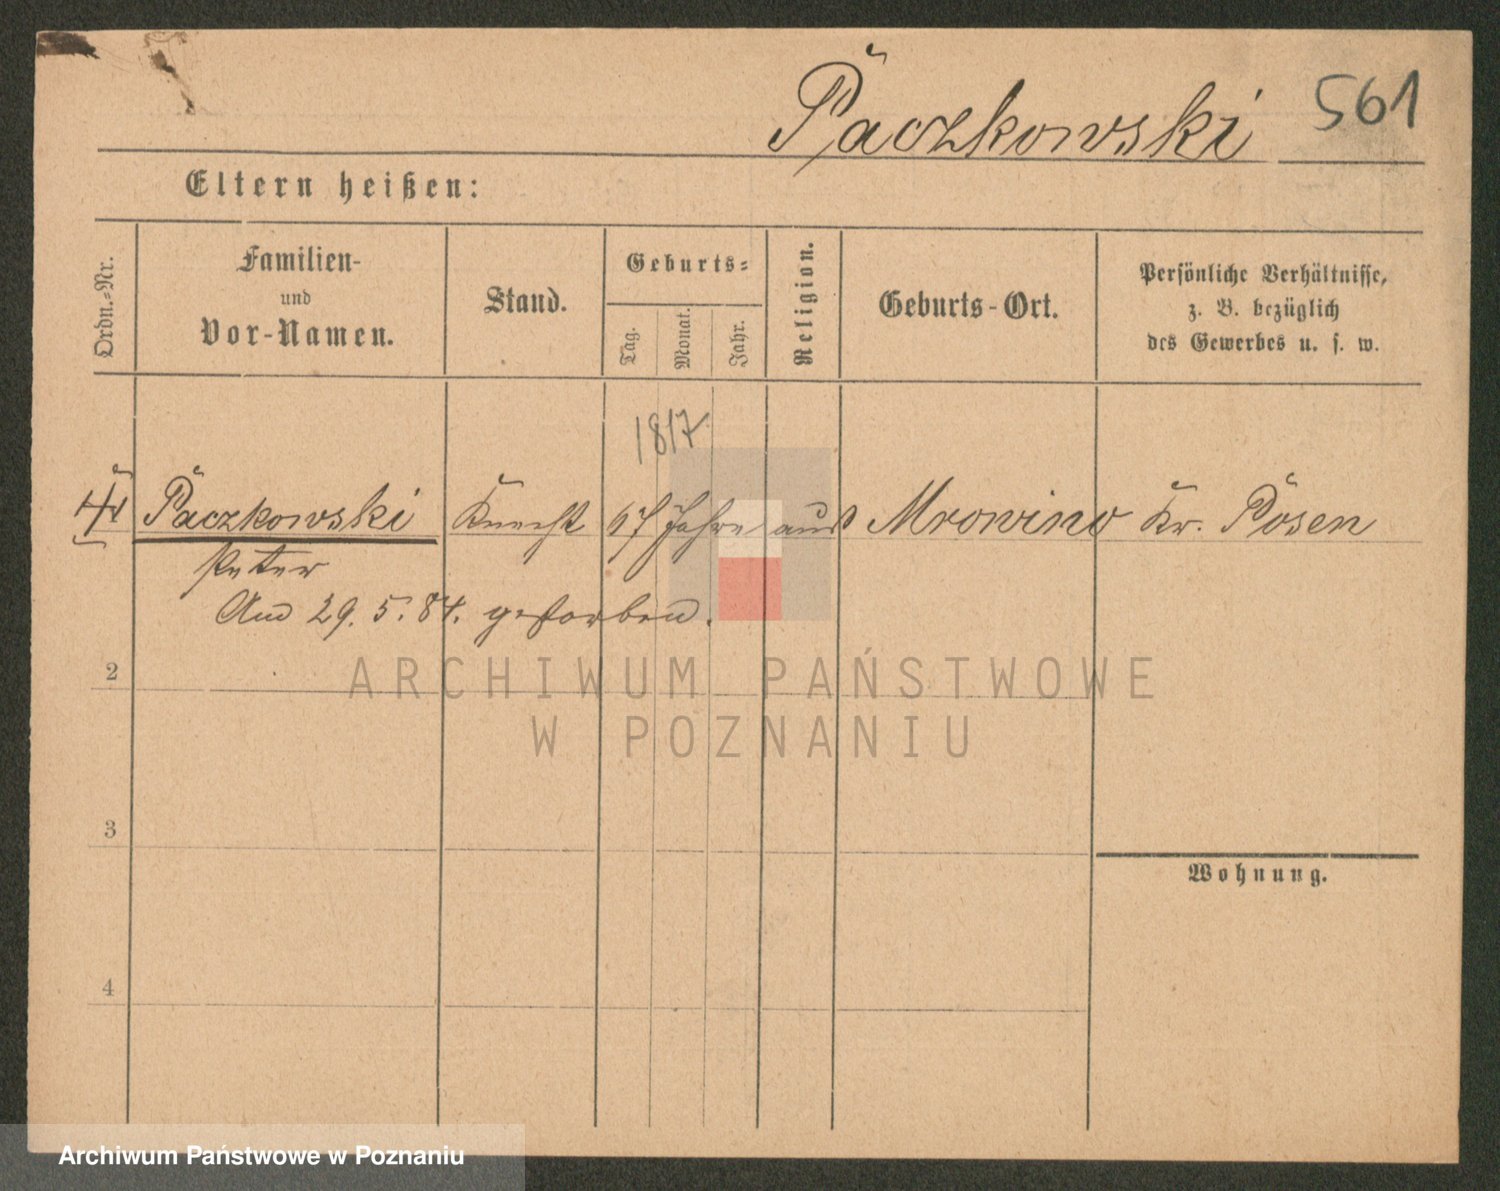 Pączkowski 561
Eltern heißen:
Ordn.=Nr.
Familien-
und
Vor-Namen.
Stand.
Geburts=
Tag.
Monat.
Jahr.
Religion.
Geburts-Ort.
Persönliche Verhältnisse,
z. B. bezüglich
des Gewerbes u. s. w.
1817
Paczkowski Knecht 67 Jahre aus Mrowino Kr. Posen
Peter
Am 29. 5. 84. gestorben.
2
3
4
Wohnung.
ARCHIWUM PAŃSTWOWE
W POZNANIU
Archiwum Państwowe w Poznaniu